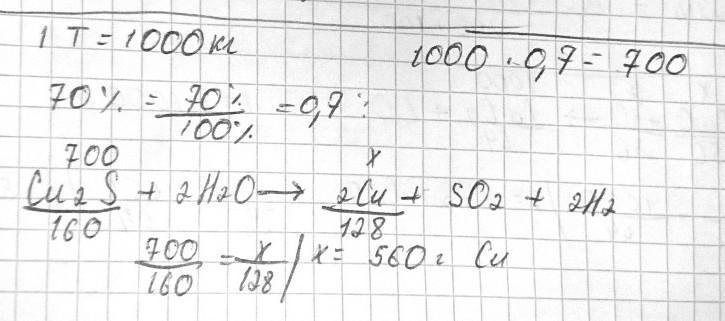 1 Т = 1000 кг
1000 · 0,7 = 700
70% = 70% / 100% = 0,7
700 x
Cu2S + 2H2O → 2Cu + SO2 + 2H2
160 128
700/160 = x/128 / x = 560г Cu